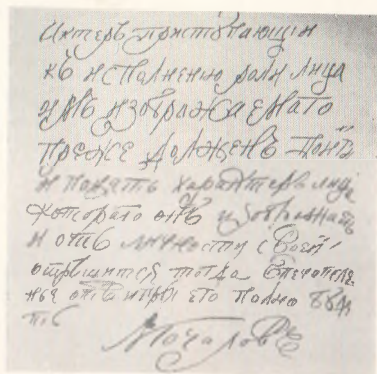 Актеръ приступающiй
къ исполненiю роли лица
имъ изображаемаго
преже долженъ
и понять характеръ лица
котораго онъ
и отъ личности своей
отрѣшится тогда впечатле
нье отъ игры его полно
Мочаловъ